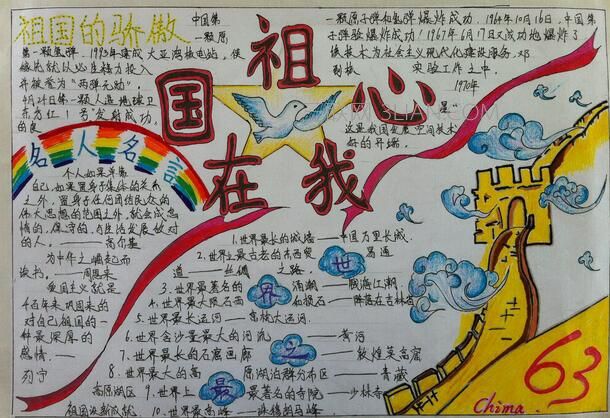 祖国的骄傲
中国第
一颗原
第一颗氢弹
1993年建成大亚湾核电站,侯
投入
并被誉为"两弹元勋"。
4月24日第一颗人造地球卫
东方红1号"发射成功。
一颗原子弹和氢弹爆炸成功。1964年10月16日,中国第
子弹验爆炸成功!1967年6月17日又成功地爆炸了
技术为社会主义现代化建设服务,邓
实验工作之中。
1970年
星"
这是我国发展"空间技术"
好的开端。
祖
国
心
在
我
名人名言
个人如果单靠
自己,如果置身于集体的关系
之外,置身于任何团结民众的
伟大思想的范围之外,就会成怠
惰的、保守的、与生活发展敌对
的人。——高尔基
为中华之崛起而
读书。——周恩来
爱国主义就是
千百年来巩固来的
对自己祖国的一
种最深厚的
感情。——
列宁
世界之最
1.世界最长的城墙——中国万里长城
2.世界上最古老的东西贸易通
道——丝绸之路。
3.世界最著名的涌潮——钱海江潮
4.世界最大陨石雨——陨落在吉林省
5.世界最长运河——京杭大运河。
6.世界含沙量最大的河流——黄河
7.世界最长的石窟画廊——敦煌莫高窟
8.世界最大的高原湖泊群分布区——青藏
高原湖区
9.世界上最著名的寺院——少林寺
10.世界最高峰——珠穆朗玛峰
63
Chima